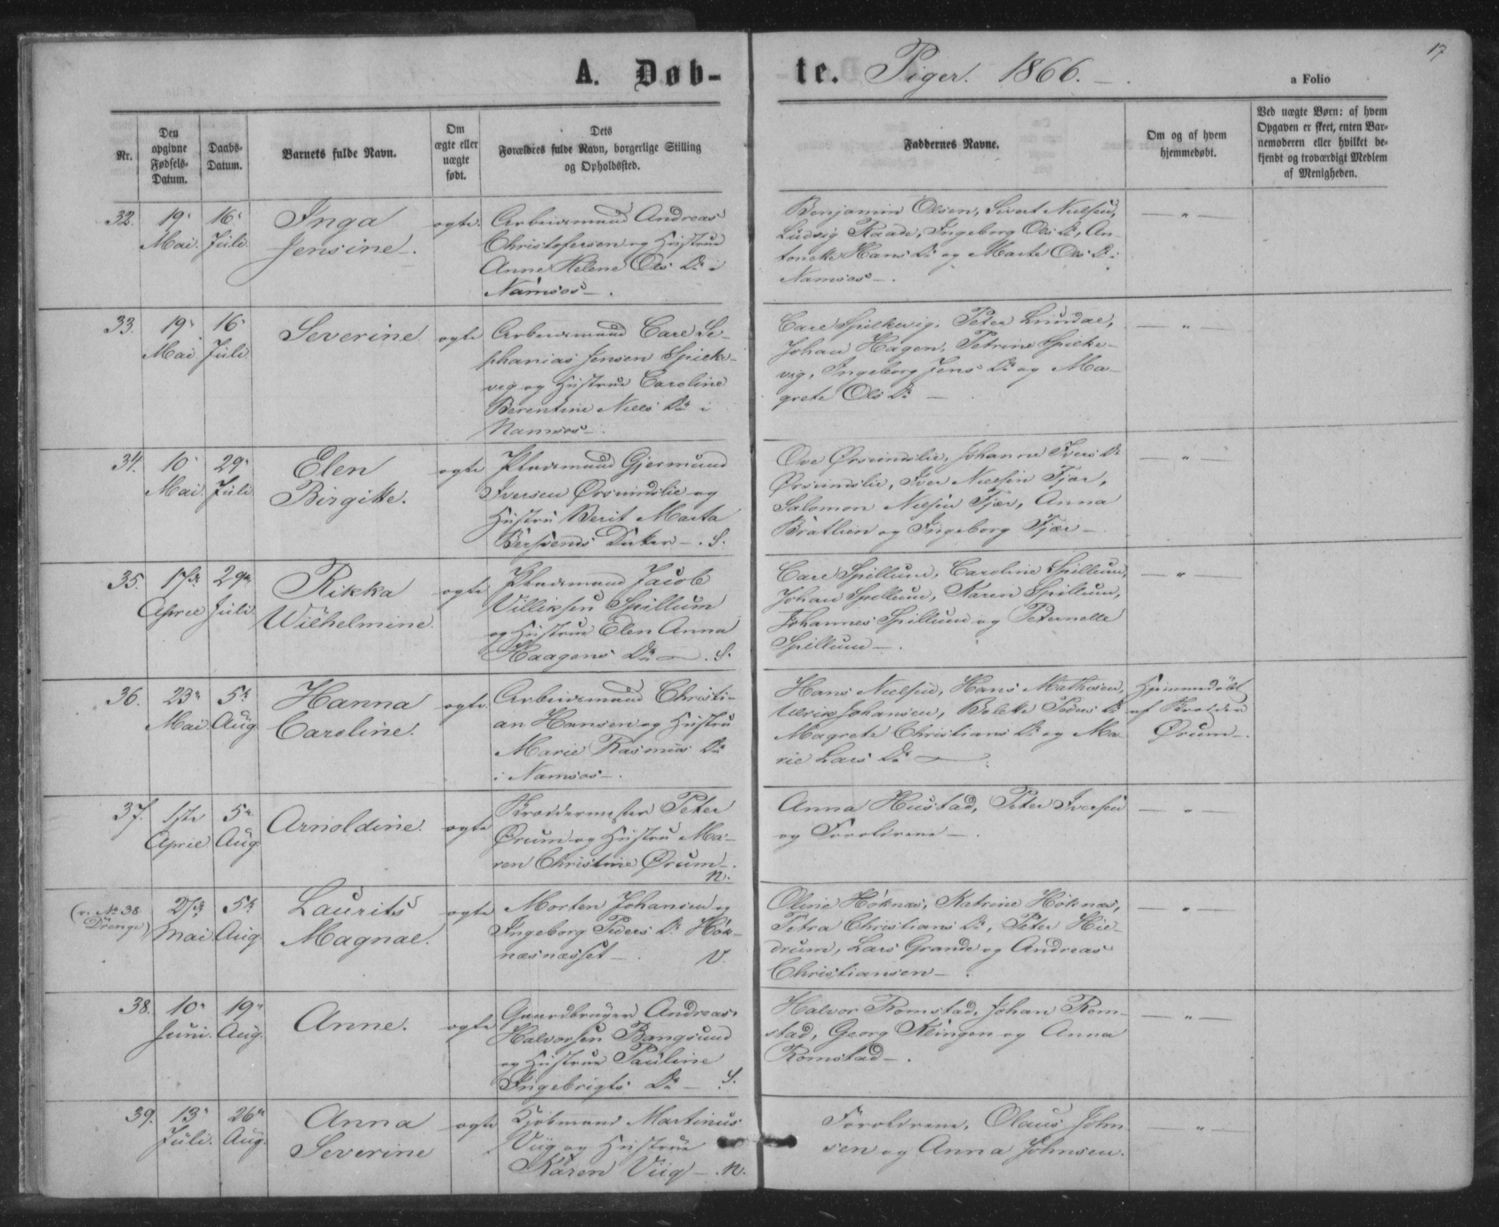 A. Døb-
te. Piger. 1866.
17
a Folio
Nr.
Den
opgivne
Fødsels-
Datum.
Daabs-
Datum.
Barnets fulde Navn.
Om
ægte eller
uægte
født.
Dets
Forældres fulde Navn, borgerlige Stilling
og Opholdssted.
Faddernes Navne.
Om og af hvem
hjemmedøbt.
Ved uægte Børn: af hvem
Opgaven er skeet, enten Bar-
nemoderen eller hvilket be-
kjendt og troværdigt Medlem
af Menigheden.
32. 19. Mai. 16. Juli
Inga
Jensine.
ægte.
Arbeidsmand Andreas
Christofersen og Hustrue
Anne Helene Ols Dr i
Namsos.
Benjamin Olsen, Sivert Nielsen,
Ludvig Staade, Ingeborg Ols Dr, An-
Hans Dr og Marte Ols Dr i
Namsos.
33. 19. Mai 16. Juli
Severine
ægte
Arbeidsmand Carl Se-
phanias Jensen Spilke-
vig og Hustrue Caroline
Berentine Niels Dr i
Namsos.
Carl Spilkevig, Peter Lindal,
Johan Hagen, Petrine Spilke-
vig, Ingeborg Jens Dr og Ma-
grete Ols Dr
34. 10. Mai. 29. Juli
Elen
Birgitte.
ægte
Pladsmand Gjermund
Iversen Ørsundslie og
Hustru Berit Marta
Datter S.
Ove Ørsundslie, Johanna Ivers Dr
Ørsundslie, Iver Nielsen Fjær,
Salomon Nielsen Fjær, Anna
Bratlien og Ingeborg Fjær
35. 17de April 29de Juli
Rikka
Wilhelmine.
ægte
Pladsmand Jacob
Villiksen Spillum
og Hustrue Elen Anna
Haagens Dr S.
Carl Spillum, Caroline Spillum,
Johan Spillum, Karen Spillum,
Johannes Spillum og Peternelle
Spillum.
36. 23. Mai 5te Aug.
Hanna
Caroline.
ægte.
Arbeidsmand Christi-
an Hansen og Hustru
Marie Rasmus Dr
i Namsos.
Hans Nielsen, Hans Mathisen,
Ulrik Johansen, Bolette Peders Dr
Magrete Christians Dr og Ma-
rie Lars Dr
Hjemmedøbt
af
Ørum.
37. 1ste April 5te Aug.
Arnoldine.
ægte
Peter
Ørum og Hustru Ma-
ren Christine Ørum
N.
Anna Hustad, Peter Iversen
og Forældrene.
(v. No 38
Drenge)
Mai 5te Aug.
Laurits
Magnae.
ægte
Morten Johansen og
Ingeborg Peders Dr Høk-
næsnæsset. V.
Oline Høknæs, Katrine Høknæs,
Petra Christians Dr, Peter Hil-
drum, Lars Grande og Andreas
Christiansen.
38. 10. Juni. 19. Aug.
Anne.
ægte
Gaardbruger Andreas
Halvorsen Bangsund
og Hustrue Pauline
Ingebrigts Dr S.
Halvor Romstad, Johan Rom-
stad, Georg Klingen og Anna
Romstad.
39. 13. Juli. 26. Aug.
Anna
Severine
ægte
Kjøbmand Martinus
Viig og Hustrue
Karen Viig N.
Forældrene, Olaus John-
sen og Anna Johnsen.